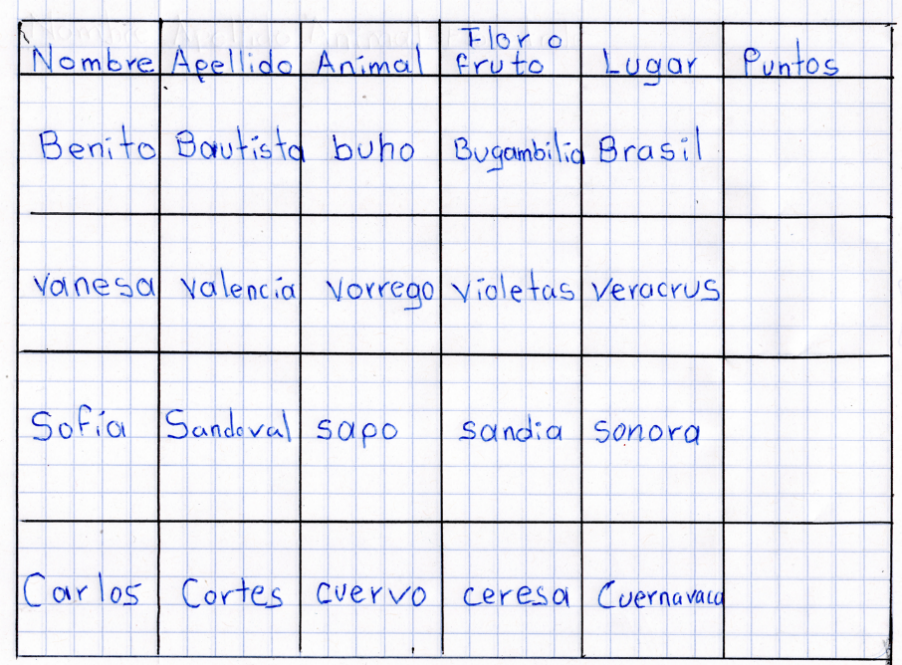 Nombre Apellido Animal Flor o fruto Lugar Puntos
Benito Bautista buho Bugambilia Brasil
vanesa valencia vorrego violetas veracrus
Sofia Sandoval sapo sandia sonora
Carlos Cortes cuervo ceresa Cuernavaca